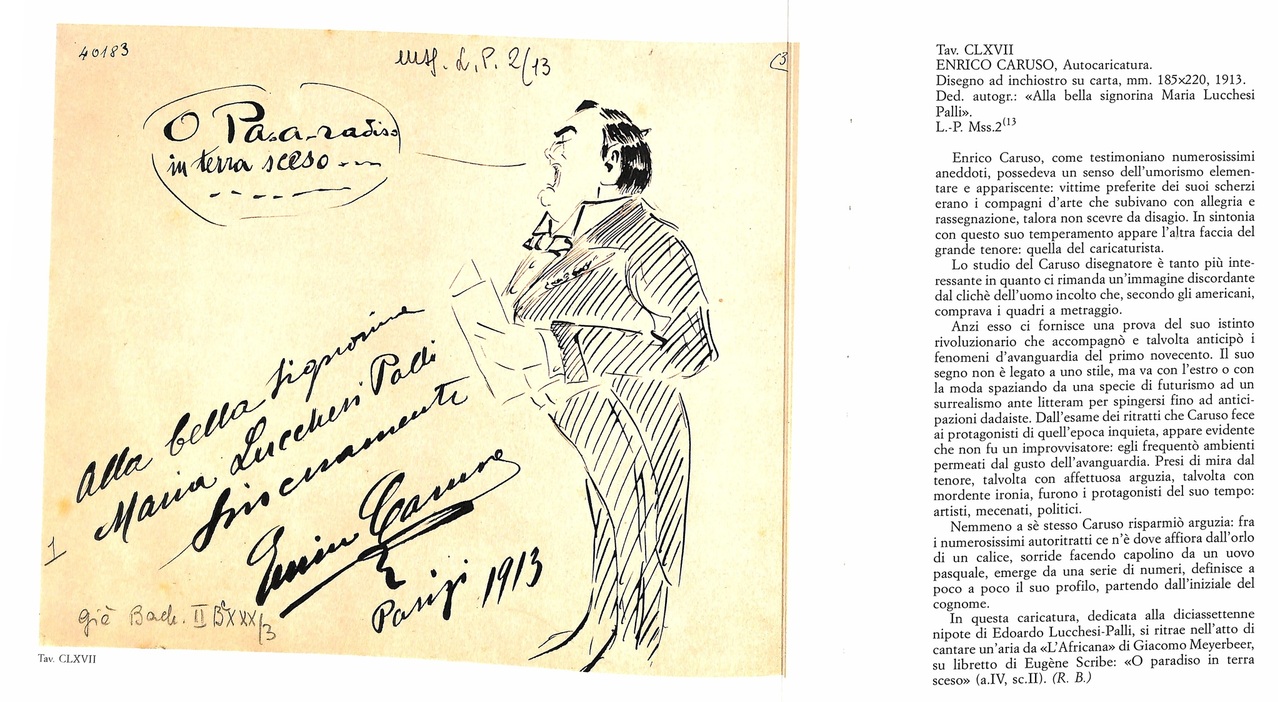 40183
Mss. L.P. 2/13
(3
O Pa.a.radiso
in terra sceso ----
Alla bella Signorina
Maria Lucchesi Palli
sinceramente
Enrico Caruso
Parigi 1913
1
già Bach. II B XXX/3
Tav. CLXVII
Tav. CLXVII
ENRICO CARUSO, Autocaricatura.
Disegno ad inchiostro su carta, mm. 185×220, 1913.
Ded. autogr.: «Alla bella signorina Maria Lucchesi
Palli».
L.-P. Mss.2(13
Enrico Caruso, come testimoniano numerosissimi
aneddoti, possedeva un senso dell'umorismo elemen-
tare e appariscente: vittime preferite dei suoi scherzi
erano i compagni d'arte che subivano con allegria e
rassegnazione, talora non scevre da disagio. In sintonia
con questo suo temperamento appare l'altra faccia del
grande tenore: quella del caricaturista.
Lo studio del Caruso disegnatore è tanto più inte-
ressante in quanto ci rimanda un'immagine discordante
dal clichè dell'uomo incolto che, secondo gli americani,
comprava i quadri a metraggio.
Anzi esso ci fornisce una prova del suo istinto
rivoluzionario che accompagnò e talvolta anticipò i
fenomeni d'avanguardia del primo novecento. Il suo
segno non è legato a uno stile, ma va con l'estro o con
la moda spaziando da una specie di futurismo ad un
surrealismo ante litteram per spingersi fino ad antici-
pazioni dadaiste. Dall'esame dei ritratti che Caruso fece
ai protagonisti di quell'epoca inquieta, appare evidente
che non fu un improvvisatore: egli frequentò ambienti
permeati dal gusto dell'avanguardia. Presi di mira dal
tenore, talvolta con affettuosa arguzia, talvolta con
mordente ironia, furono i protagonisti del suo tempo:
artisti, mecenati, politici.
Nemmeno a sè stesso Caruso risparmiò arguzia: fra
i numerosissimi autoritratti ce n'è dove affiora dall'orlo
di un calice, sorride facendo capolino da un uovo
pasquale, emerge da una serie di numeri, definisce a
poco a poco il suo profilo, partendo dall'iniziale del
cognome.
In questa caricatura, dedicata alla diciassettenne
nipote di Edoardo Lucchesi-Palli, si ritrae nell'atto di
cantare un'aria da «L'Africana» di Giacomo Meyerbeer,
su libretto di Eugène Scribe: «O paradiso in terra
sceso» (a.IV, sc.II). (R. B.)